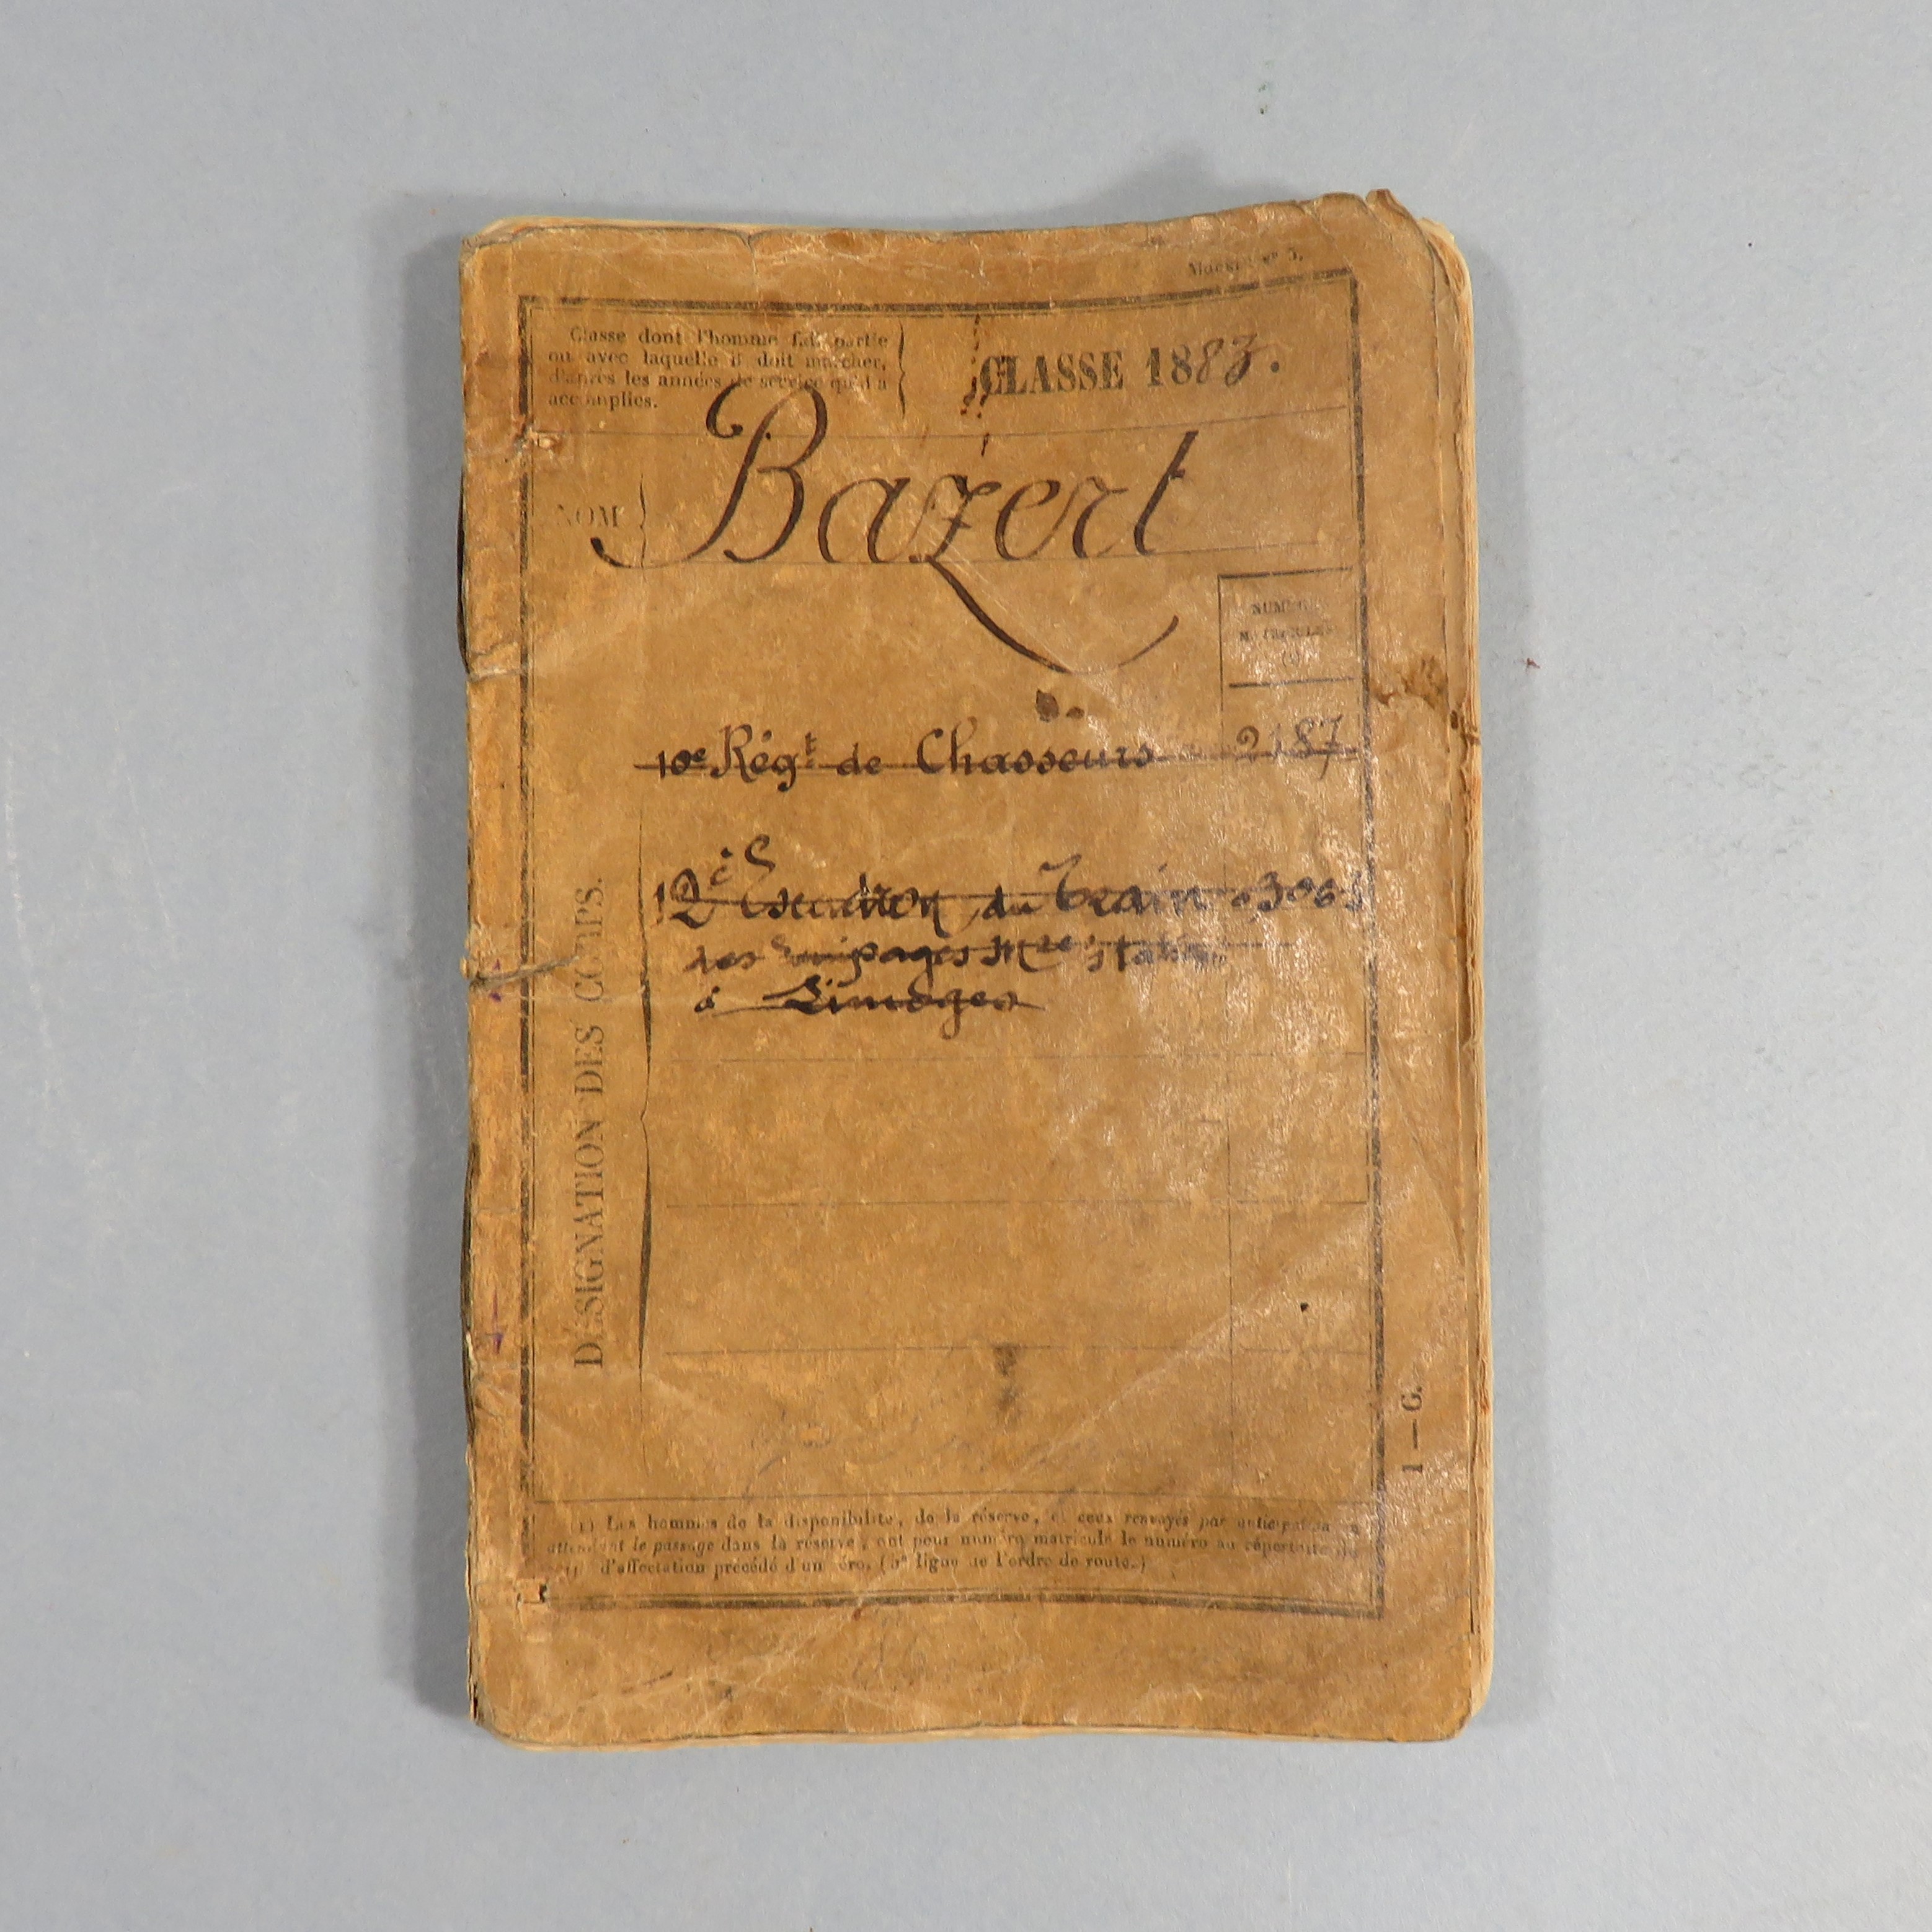 Modèle n° 3.
Classe dont l'homme fait partie
ou avec laquelle il doit marcher,
d'après les années de service qu'il a
accomplies.
CLASSE 1883.
NOM
Bazert
NUMÉROS
MATRICULES
(1)
10e Régt de Chasseurs 2187
12e Escadron du Train
des équipages
à Limoges
DÉSIGNATION DES CORPS.
1—G.
(1) Les hommes de la disponibilité, de la réserve, et ceux renvoyés par anticipation
attendant le passage dans la réserve, ont pour numéro matricule le numéro au répertoire du
d'affectation précédé d'un zéro. (5e ligne de l'ordre de route.)